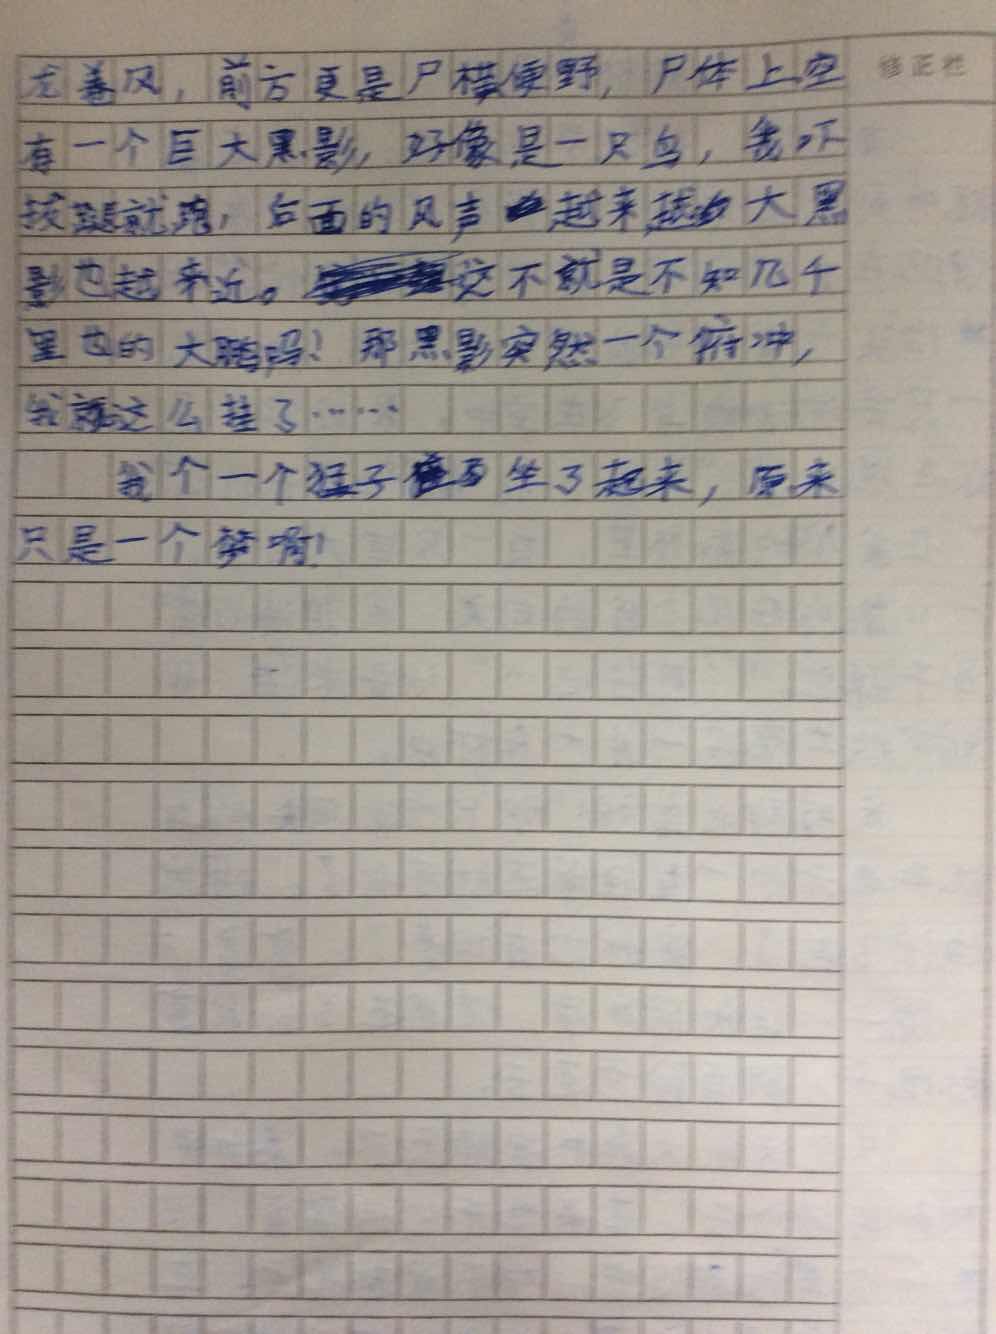 龙卷风，前方更是尸横便野，尸体上空
修正栏
有一个巨大黑影，好像是一只鸟，我吓
拔腿就跑，后面的风声越来越大黑
影也越来近。这不就是不知几千
里也的大鹏吗！那黑影突然一个俯冲，
我就这么挂了……
我个一个猛子坐了起来，原来
只是一个梦啊！